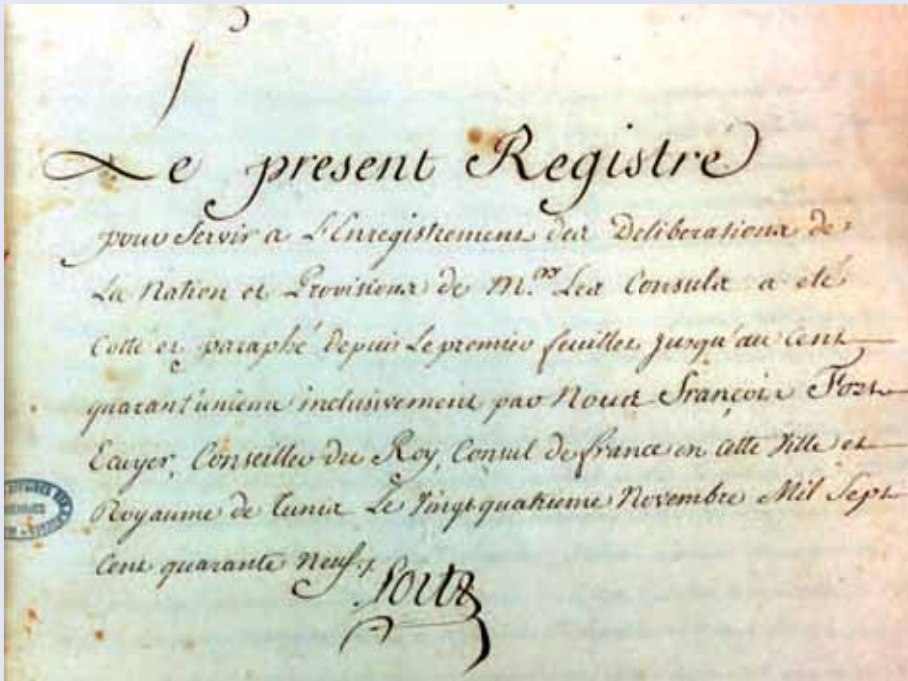 Le present Registre
pour servir a L'Enregistrement des Deliberations de
La Nation et Provisions de M.rs Les Consuls a eté
Cotté et paraphé depuis Le premier feuillet jusqu'au Cent
quarant'unieme inclusivement par Nous François Fort
Ecuyer, Conseiller du Roy, Consul de france en cette Ville et
Royaume de Tunis Le Vingt quatrieme Novembre Mil Sept
Cent quarante Neuf ./.
Fort